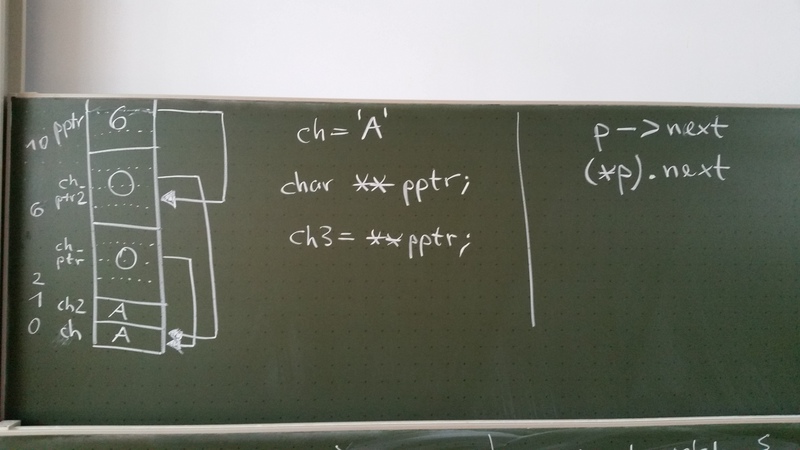 10 pptr 6
6 ch_ptr2 0
2 ch_ptr 0
1 ch2 A
0 ch A
ch = 'A'
char ** pptr;
ch3 = **pptr;
p -> next
(*p).next